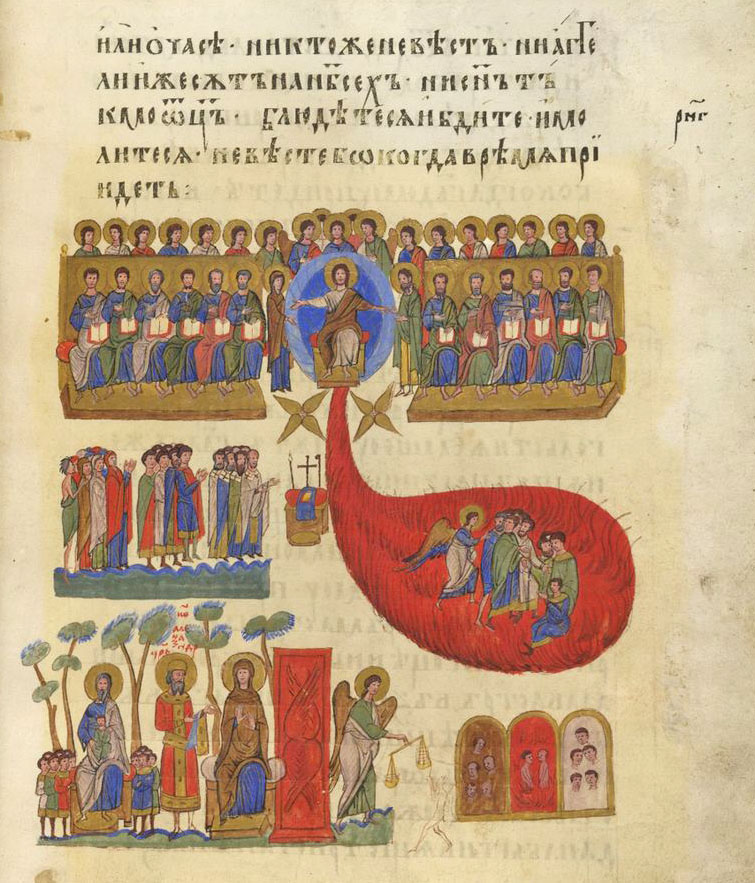 или о часѣ · никтоже не вѣстъ · ни аг҃ге
ли иже сѫтъ на нб҃сехъ · ни сн҃ъ тъ
кмо ѿц҃ъ · блюдѣтесѧ и бдите · и мо
литесѧ · не вѣсте бѡ когда врѣмѧ прї
идетъ :
рм҃г